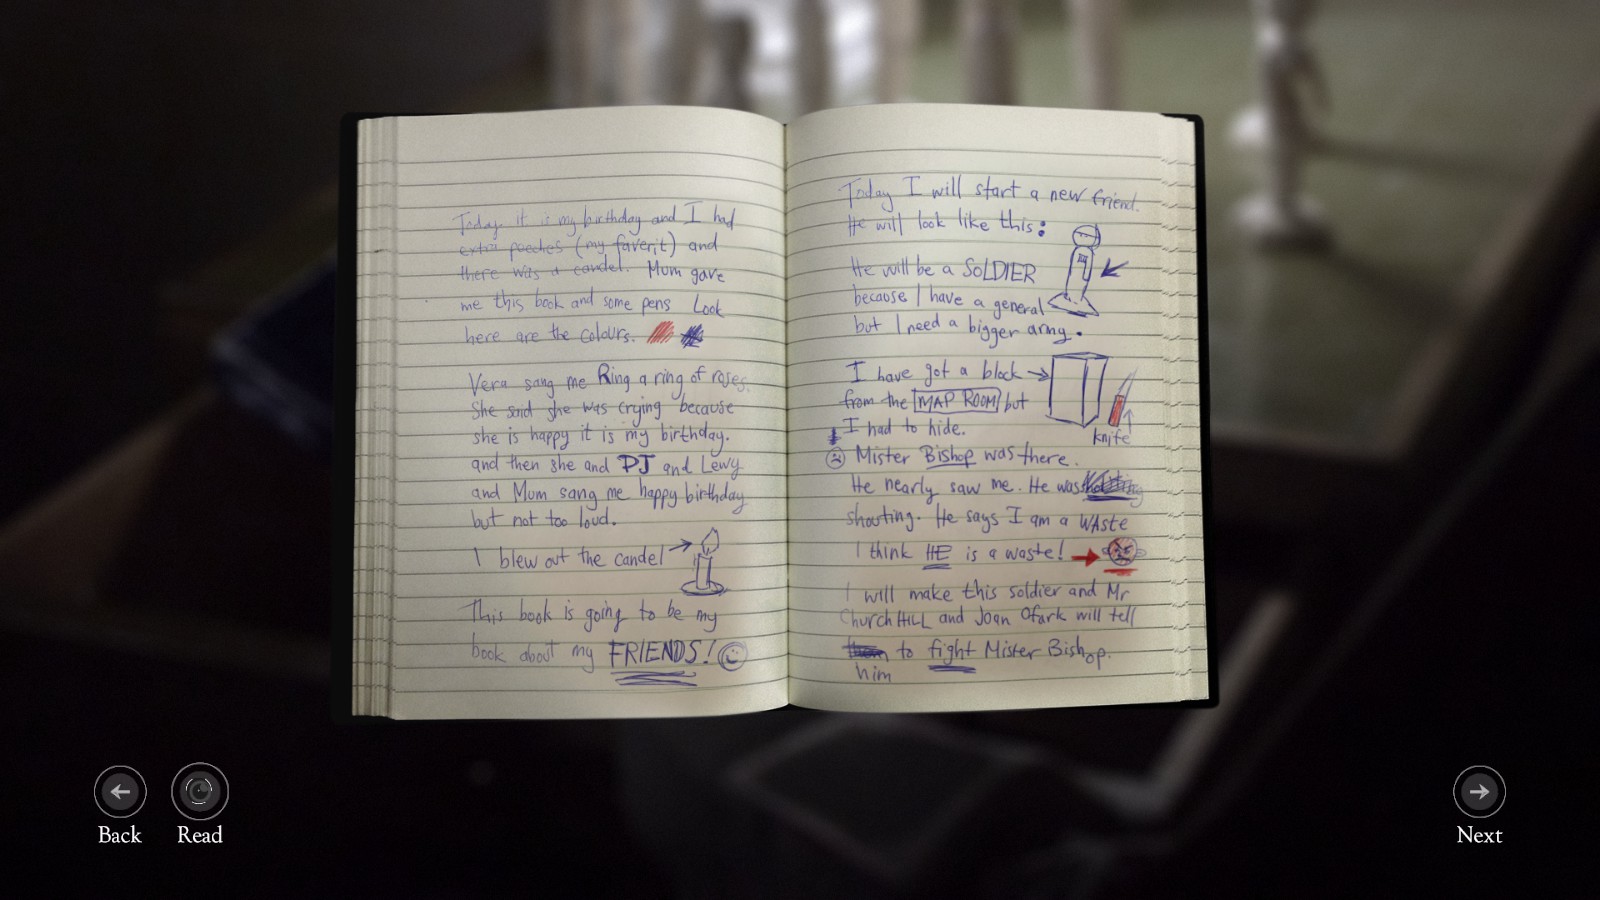 Today it is my birthday and I had
extra peeches (my faverit) and
there was a candel. Mum gave
me this book and some pens Look
here are the colours.
Vera sang me Ring a ring of roses.
She said she was crying because
she is happy it is my birthday.
and then she and DJ and Lewy
and Mum sang me happy birthday
but not too loud.
I blew out the candel
This book is going to be my
book about my FRIENDS!
Today I will start a new friend.
He will look like this:
He will be a SOLDIER
because I have a general
but I need a bigger army.
I have got a block
from the MAP ROOM but
I had to hide.
knife
Mister Bishop was there.
He nearly saw me. He was
shouting. He says I am a WASte
I think HE is a waste!
I will make this soldier and Mr
Church HILL and Joan Ofark will tell
to fight Mister Bishop.
him
Back
Read
Next